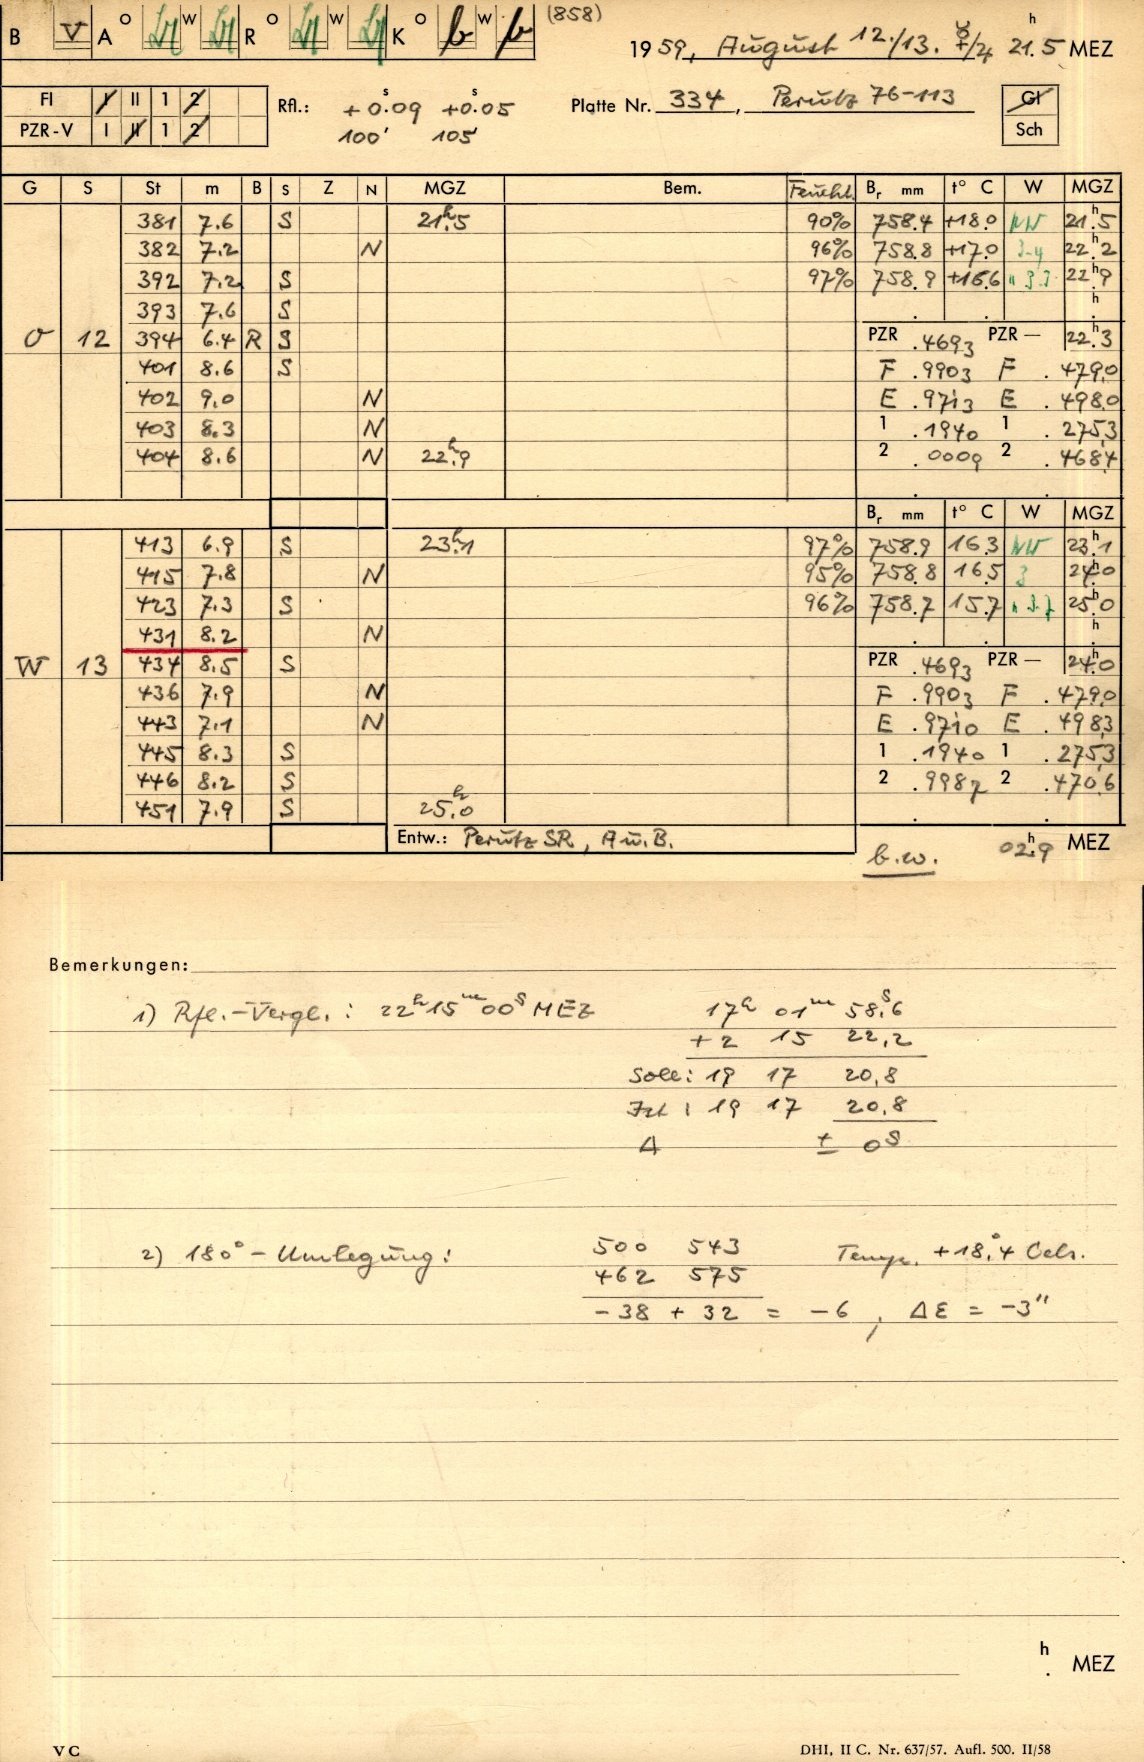 B V A O W R O W K O b W b (858)
1959, August 12./13. ☿/♃ 21.5 h MEZ
FI I II 1 2
PZR-V I II 1 2
Rfl.: +0.09 s +0.05 s
100' 105'
Platte Nr. 334, Perutz 76-113
GI
Sch
G S St m B S Z N MGZ Bem. Feucht. Br mm t° C W MGZ
381 7.6 S 21h.5 90% 758.4 +18.0 NW 21h.5
382 7.2 N 96% 758.8 +17.0 3-4 22h.2
392 7.2 S 97% 758.9 +16.6 22h.9
393 7.6 S h
O 12 394 6.4 R S PZR .4693 PZR — 22h.3
401 8.6 S F .9903 F .4790
402 9.0 N E .9713 E .4980
403 8.3 N 1 .1940 1 .2753
404 8.6 N 22h.9 2 .0009 2 .4684
Br mm t° C W MGZ
413 6.9 S 23h.1 97% 758.9 16.3 NW 23h.1
415 7.8 N 95% 758.8 16.5 3 24h.0
423 7.3 S 96% 758.7 15.7 25h.0
431 8.2 N h
W 13 434 8.5 S PZR .4693 PZR — 24h.0
436 7.9 N F .9903 F .4790
443 7.1 N E .9710 E .4983
445 8.3 S 1 .1940 1 .2753
446 8.2 S 2 .9987 2 .4706
451 7.9 S 25h.0
Entw.: Perutz SR, A u. B.
b.w. 02h.9 MEZ
Bemerkungen:
1) Rfl.-Vergl.: 22h 15m 00s MEZ 17h 01m 58s.6
+2 15 22,2
Soll: 19 17 20,8
Ist: 19 17 20,8
Δ ± 0s
2) 180°-Umlegung: 500 543 Temp. +18°.4 Cels.
462 575
-38 + 32 = -6, Δε = -3"
h
. MEZ
VC
DHI, II C. Nr. 637/57. Aufl. 500. II/58